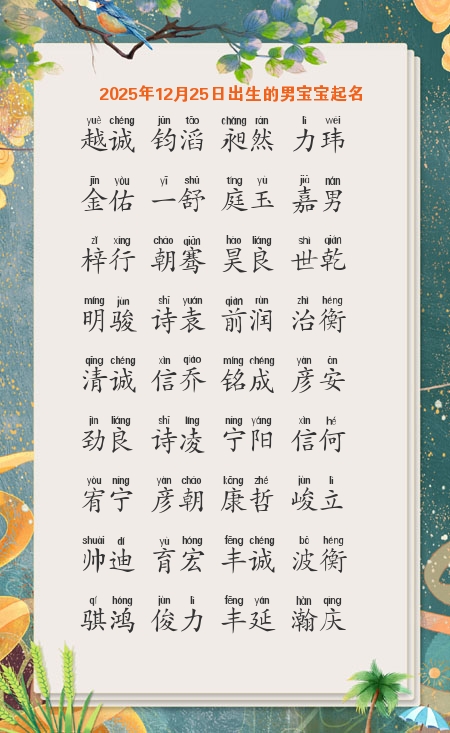 2025年12月25日出生的男宝宝起名
yuè chéng jūn tāo chǎng rán lì wěi
越诚 钧滔 昶然 力玮
jīn yòu yī shū tíng yù jiā nán
金佑 一舒 庭玉 嘉男
zǐ xíng cháo qiān hào liáng shì qián
梓行 朝骞 昊良 世乾
míng jùn shī yuán qián rùn zhì héng
明骏 诗袁 前润 治衡
qīng chéng xìn qiáo míng chéng yàn ān
清诚 信乔 铭成 彦安
jìn liáng shī líng níng yáng xìn hé
劲良 诗凌 宁阳 信何
yòu níng yàn cháo kāng zhé jùn lì
宥宁 彦朝 康哲 峻立
shuài dí yù hóng fēng chéng bō héng
帅迪 育宏 丰诚 波衡
qí hóng jùn lì fēng yán hàn qìng
骐鸿 俊力 丰延 瀚庆